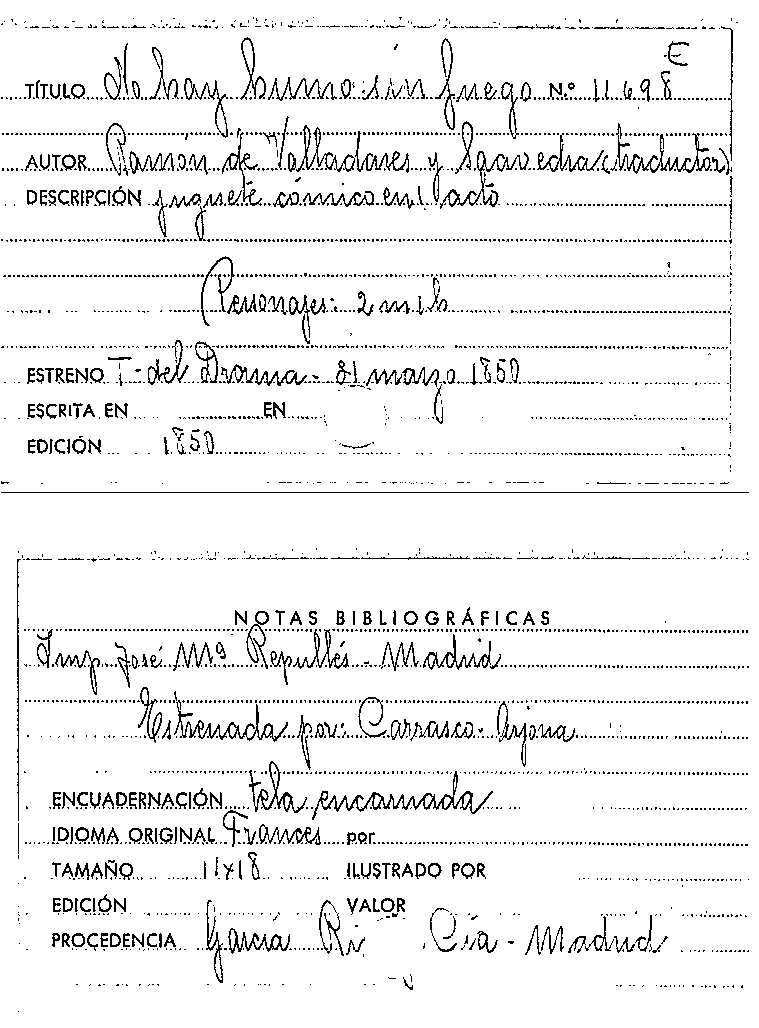 E
TÍTULO No hay humo sin fuego N.º 11698
AUTOR Ramón de Valladares y Saavedra (traductor)
DESCRIPCIÓN juguete cómico en 1 acto
Personajes: 2 m 1 h
ESTRENO T- del Drama - 31 marzo 1850
ESCRITA EN EN
EDICIÓN 1850
NOTAS BIBLIOGRÁFICAS
Imp. José Mª Repullés - Madrid
Estrenada por: Carrasco - Arjona
ENCUADERNACIÓN tela encarnada
IDIOMA ORIGINAL Frances por
TAMAÑO 11x18 ILUSTRADO POR
EDICIÓN VALOR
PROCEDENCIA García Cía - Madrid